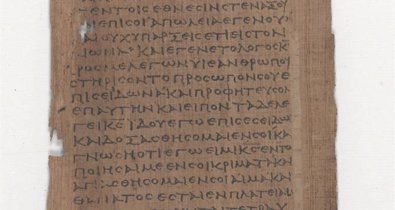 ΕΝΤΟΙΣΕΘΝΕϹΙΝϹΤΕΝΑΞΟΥ
ΕΠΙϹΟΙΑΠΩΛΕΙΑΕΓΕΝΟΥ
ΟΥΧΥΠΑΡΞΕΙϹΕΤΙΕΙϹΤΟΝ
ΩΝΑ ΚΑΙΕΓΕΝΕΤΟΛΟΓΟϹΚΥ
ΠΡΟϹΜΕΛΕΓΩΝΥΙΕΑΝΘΡΩΠΟΥ
ϹΤΗΡΙϹΟΝΤΟΠΡΟϹΩΠΟΝϹΟΥΕ
ΠΙϹΕΙΔΩΝΑΚΑΙΠΡΟΦΗΤΕΥϹΟΝ
ΕΠΑΥΤΗΝΚΑΙΕΙΠΟΝΤΑΔΕΛΕ
ΓΕΙΚϹΙΔΟΥΕΓΩΕΠΙϹΕϹΕΙΔΩ
ΚΑΙΔΟΞΑϹΘΗϹΟΜΑΙΕΝϹΟΙΚΑΙ
ΓΝΩϹΗΟΤΙΕΓΩΕΙΜΙΚϹΕΝΤΩ
ΠΟΙΗϹΑΙΜΕΕΝϹΟΙΚΡΙΜΑΤΑΚΑΙ
ΑϹΘΗϹΟΜΑΙΕΝϹΟΙΑΙΜΑΚΑΙ
ΘΑΝΑΤΟϹΕϹΤΑΙΕΝΠΛΑΤΕΙΑΙϹ